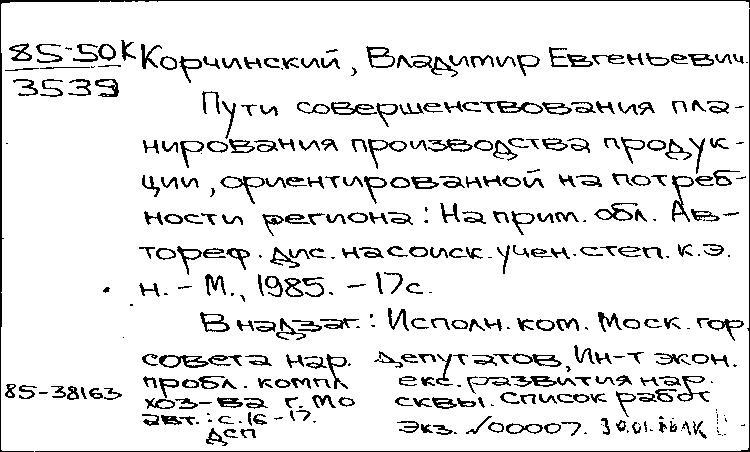 85-50К
3539
Корчинский, Владимир Евгеньевич.
Пути совершенствования пла-
нирования производства продук-
ции, ориентированной на потреб-
ности региона: На прим. обл. Ав-
тореф. дис. на соиск. учен. степ. к.э.
н. - М., 1985. - 17с.
В надзаг.: Исполн. ком. Моск. гор.
совета нар. депутатов, Ин-т экон.
85-38163
пробл. компл екс. развития нар.
хоз-ва г. Мо сквы. Список работ
авт.: с. 16-17.
ДСП
экз. №00007. 30.01.